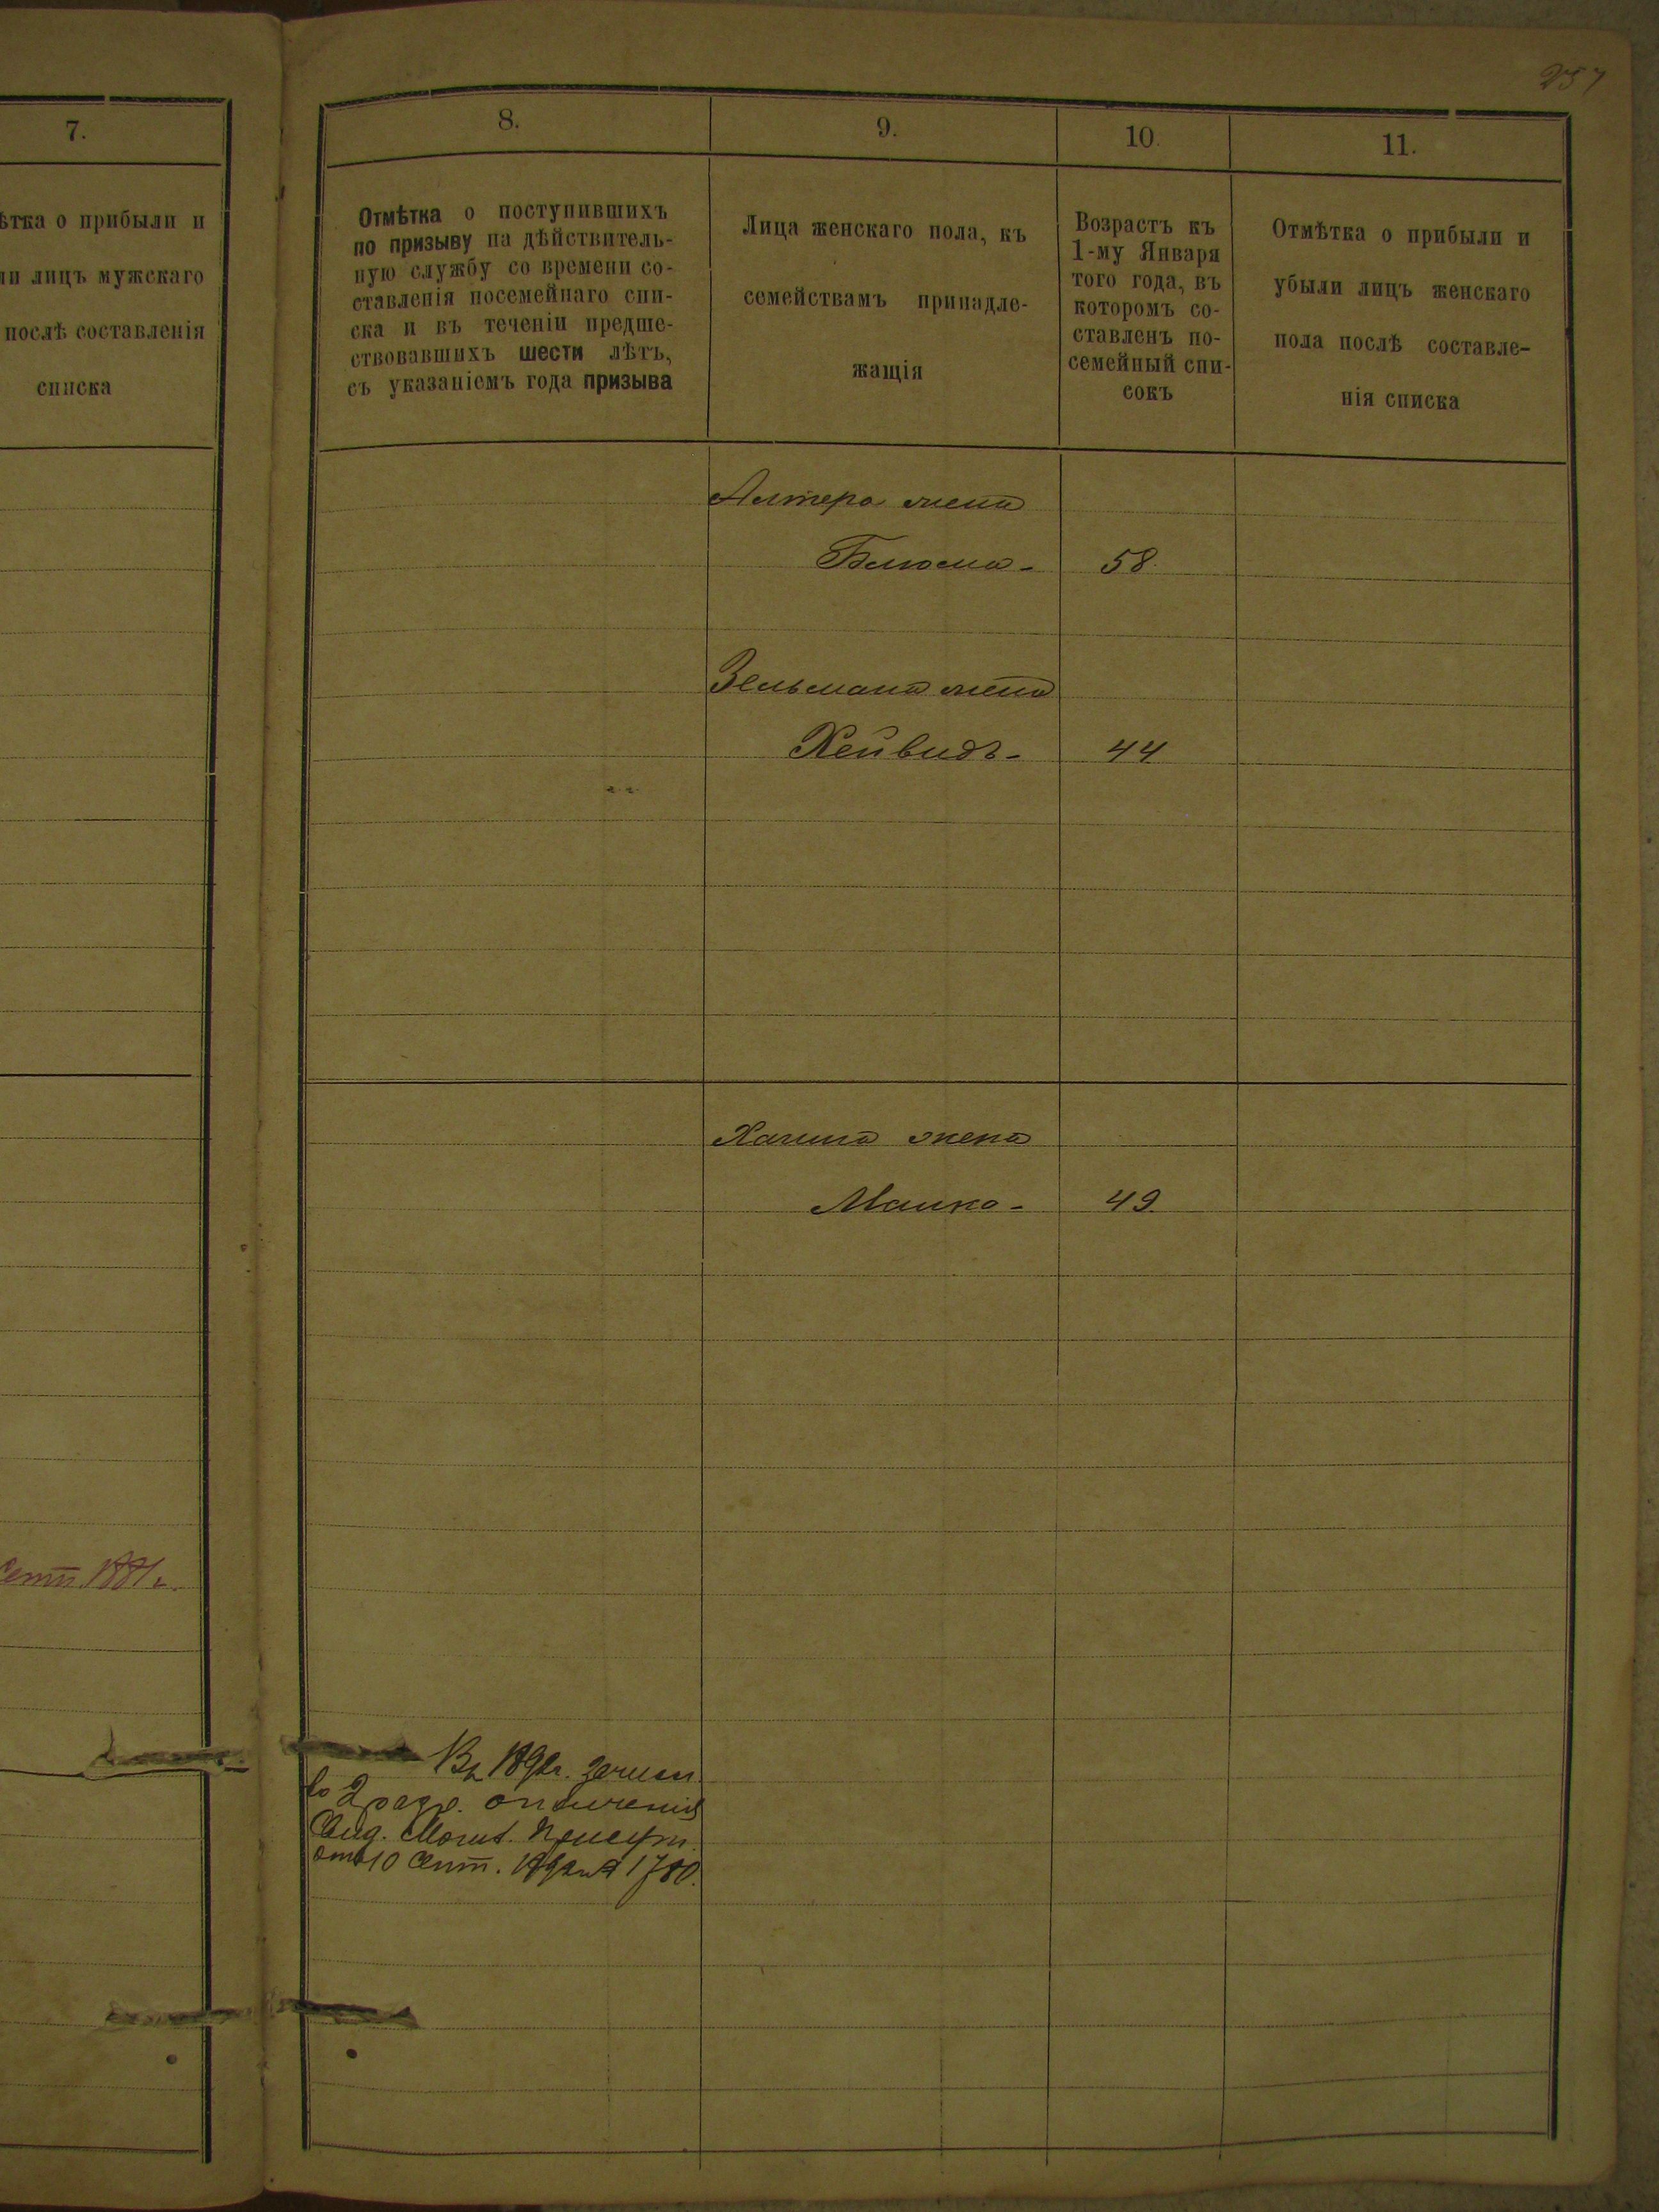 257
7.
ѣтка о прибыли и
ли лицъ мужскаго
послѣ составленія
списка
Сент 1881 г.
8.
Отмѣтка о поступившихъ
по призыву на дѣйствитель-
ную службу со времени со-
ставленія посемейнаго спи-
ска и въ теченіи предше-
ствовавшихъ шести лѣтъ,
съ указаніемъ года призыва
9.
Лица женскаго пола, къ
семействамъ принадле-
жащія
10.
Возрастъ къ
1-му Января
того года, въ
которомъ со-
ставленъ по-
семейный спи-
сокъ
11.
Отмѣтка о прибыли и
убыли лицъ женскаго
пола послѣ составле-
нія списка
Алтера жена
Блюма - 58.
Зельмана жена
Хейвидъ - 44
Хаима жена
Малка - 49.
Въ 1892 г. зачисл.
во 2 разр. ополченія
Могил.
отъ 10 Сент. 1892 г. № 1780.